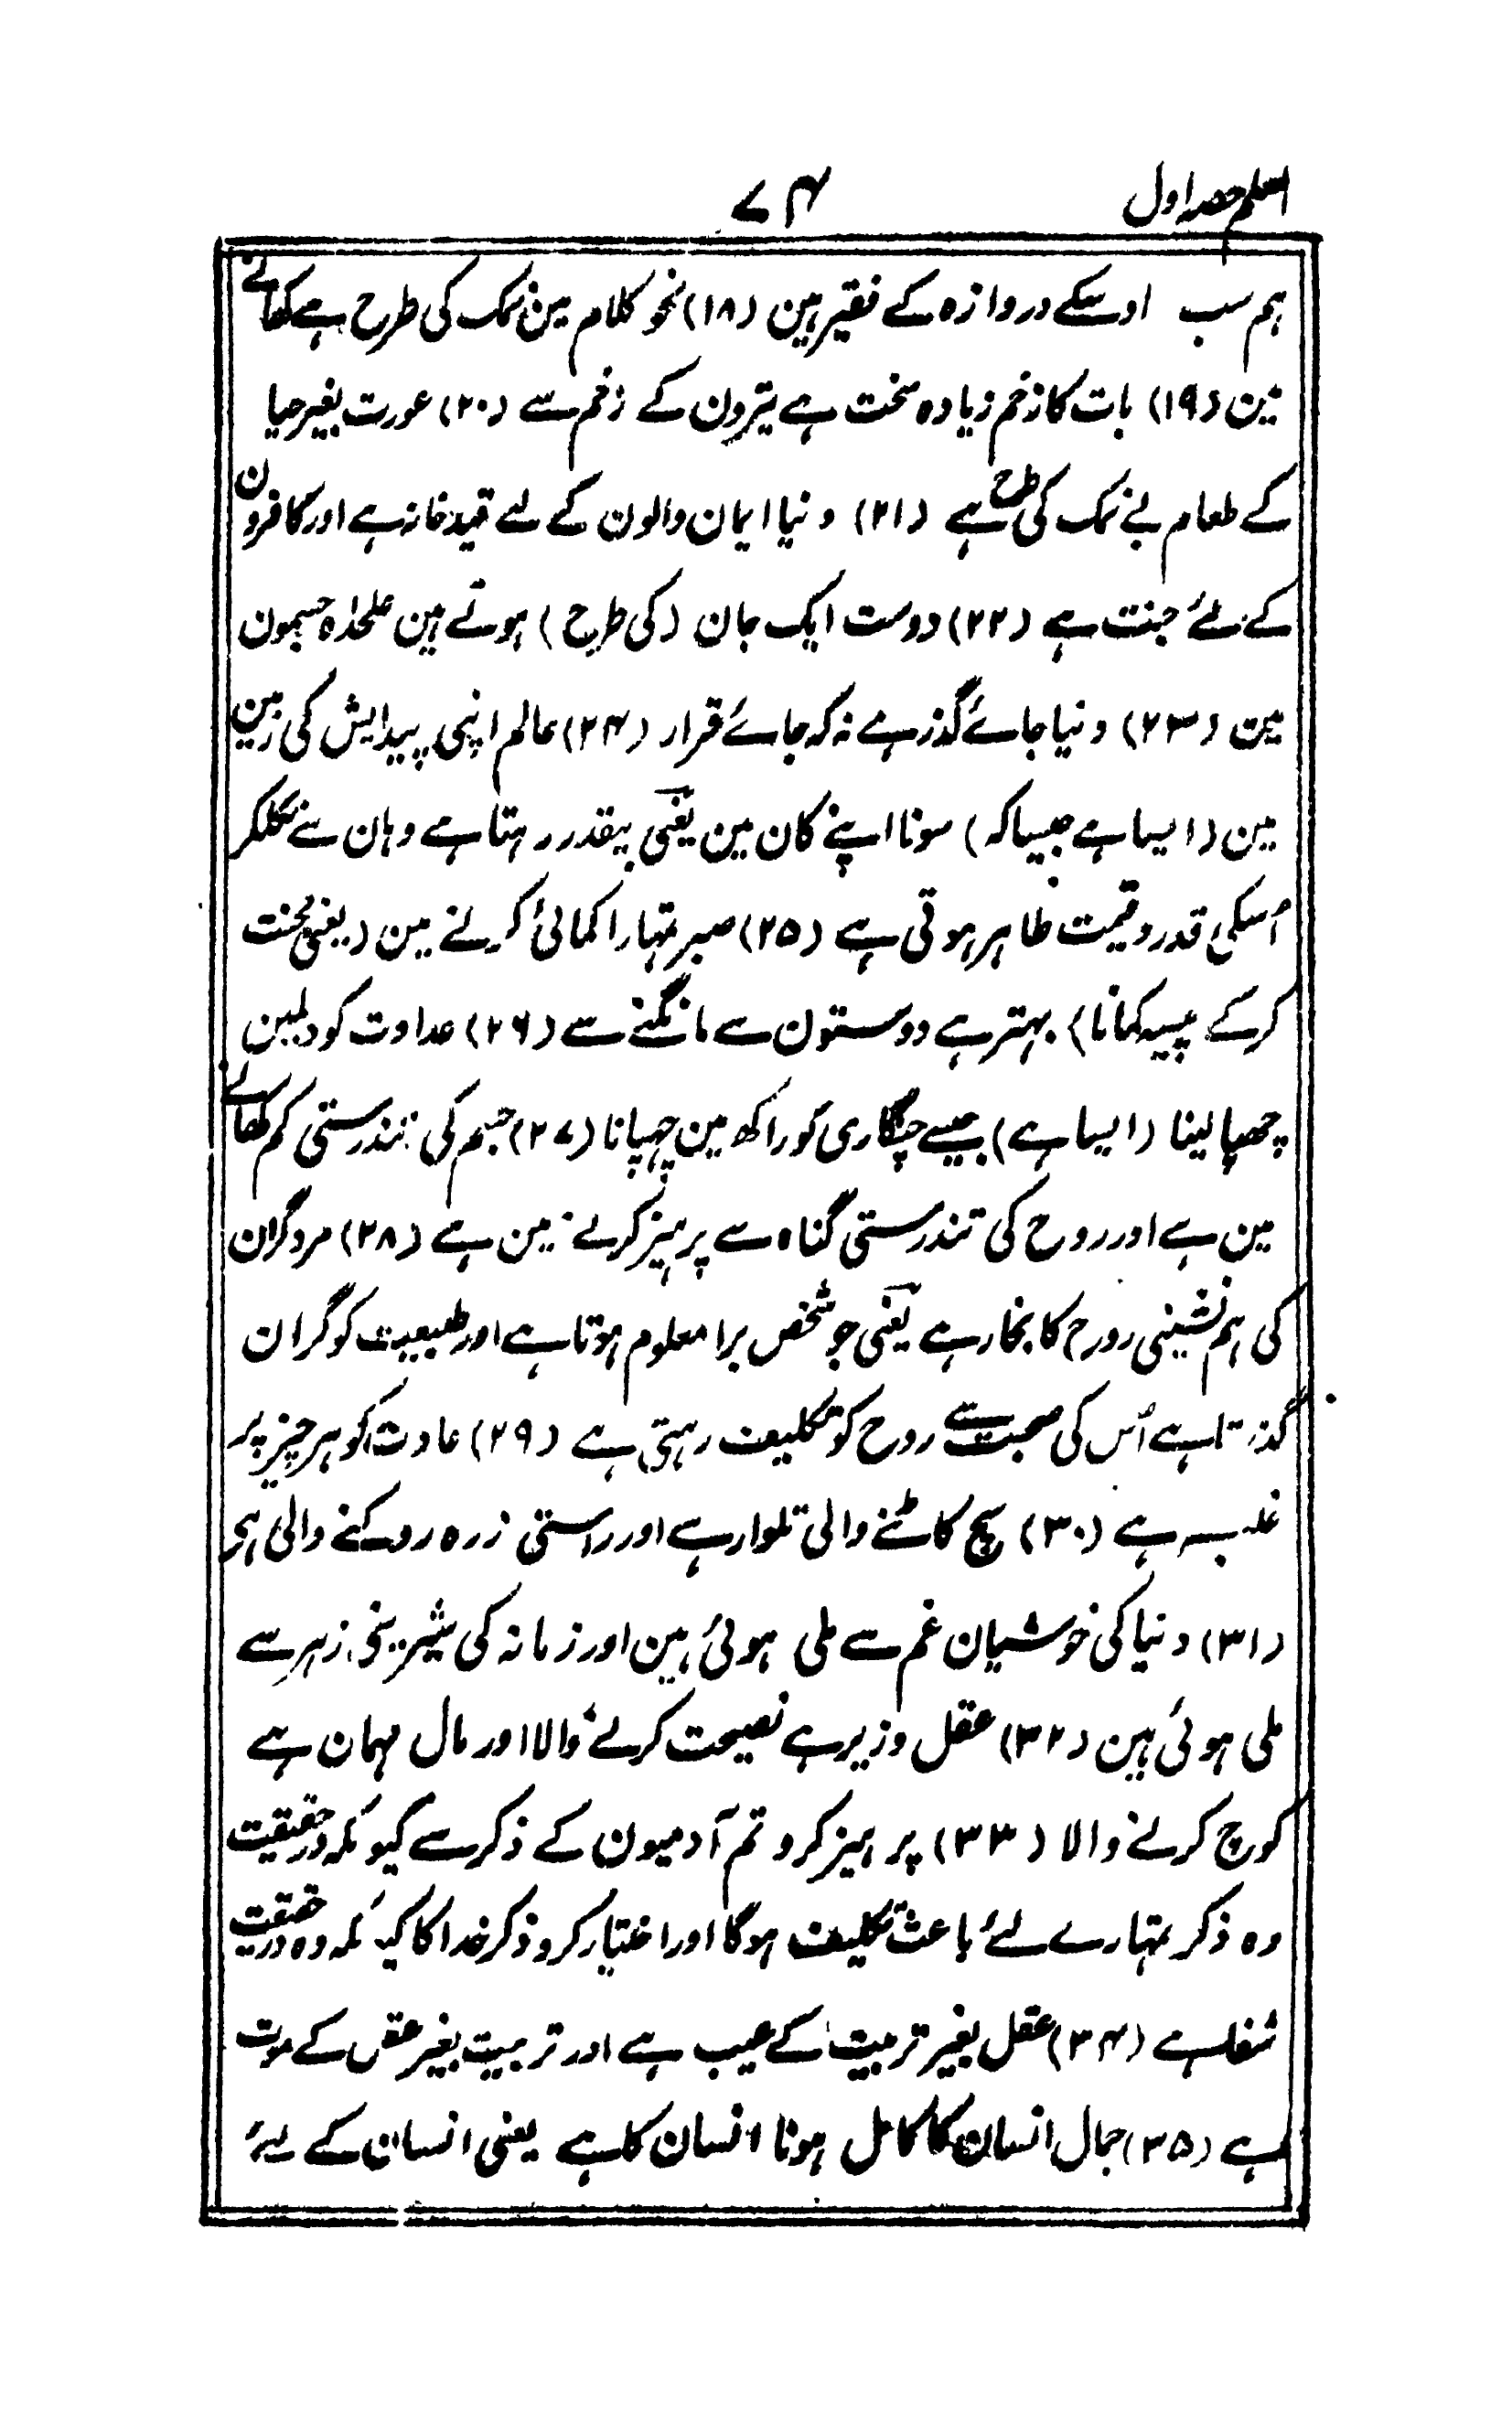 اسلم حصہ اول
۷۴
ہم سب اوسکے دروازہ کے فقیر ہین (۱۸) نحو کلام مین نمک کی طرح ہے کھانے
مین (۱۹) بات کا زخم زیادہ سخت ہے تیرون کے زخم سے (۲۰) عورت بغیر حیا
کے طعام بے نمک کی طرح ہے (۲۱) دنیا ایمان والون کے لئے قید خانہ ہے اور کافرون
کے لئے جنت ہے (۲۲) دوست ایک جان (کی طرح) ہوتے ہین علحدہ جسمون
مین (۲۳) دنیا جائے گذر ہے نہ کہ جائے قرار (۲۴) عالم اپنی پیدایش کی زمین
مین (ایسا ہے جیسا کہ) سونا اپنے کان مین یعنی بیقدر رہتا ہے وہان سے نکلکر
اُسکی قدر و قیمت ظاہر ہوتی ہے (۲۵) صبر تمہارا کمائی کرنے مین (یعنی محنت
کرکے پیسہ کمانا) بہتر ہے دوستون سے مانگنے سے (۲۶) عداوت کو دلمین
چھپا لینا (ایسا ہے) جیسے چنگاری کو راکھ مین چھپانا (۲۷) جسم کی تندرستی کم کھانے
مین ہے اور روح کی تندرستی گناہ سے پرہیز کرنے مین ہے (۲۸) مرد گران
کی ہم نشینی روح کا بخار ہے یعنی جو شخص برا معلوم ہوتا ہے اور طبیعت کو گران
گذرتا ہے اُس کی صحبت سے روح کو تکلیف رہتی ہے (۲۹) عادت کو ہر چیز پر
غلبہ ہے (۳۰) سچ کاٹنے والی تلوار ہے اور راستی زرہ روکنے والی ہے
(۳۱) دنیا کی خوشیان غم سے ملی ہوئی ہین اور زمانہ کی شیرینی زہر سے
ملی ہوئی ہین (۳۲) عقل وزیر ہے نصیحت کرنے والا اور مال مہمان ہے
کوچ کرنے والا (۳۳) پرہیز کرو تم آدمیون کے ذکر سے کیونکہ درحقیقت
وہ ذکر تمہارے لئے باعث تکلیف ہوگا اور اختیار کرو ذکر خدا کا کیونکہ وہ درحقیقت
شفا ہے (۳۴) عقل بغیر تربیت کے عیب ہے اور تربیت بغیر عقل کے موت
ہے (۳۵) جمال انسان کا کامل ہونا انسان کا ہے یعنی انسان کے لئے